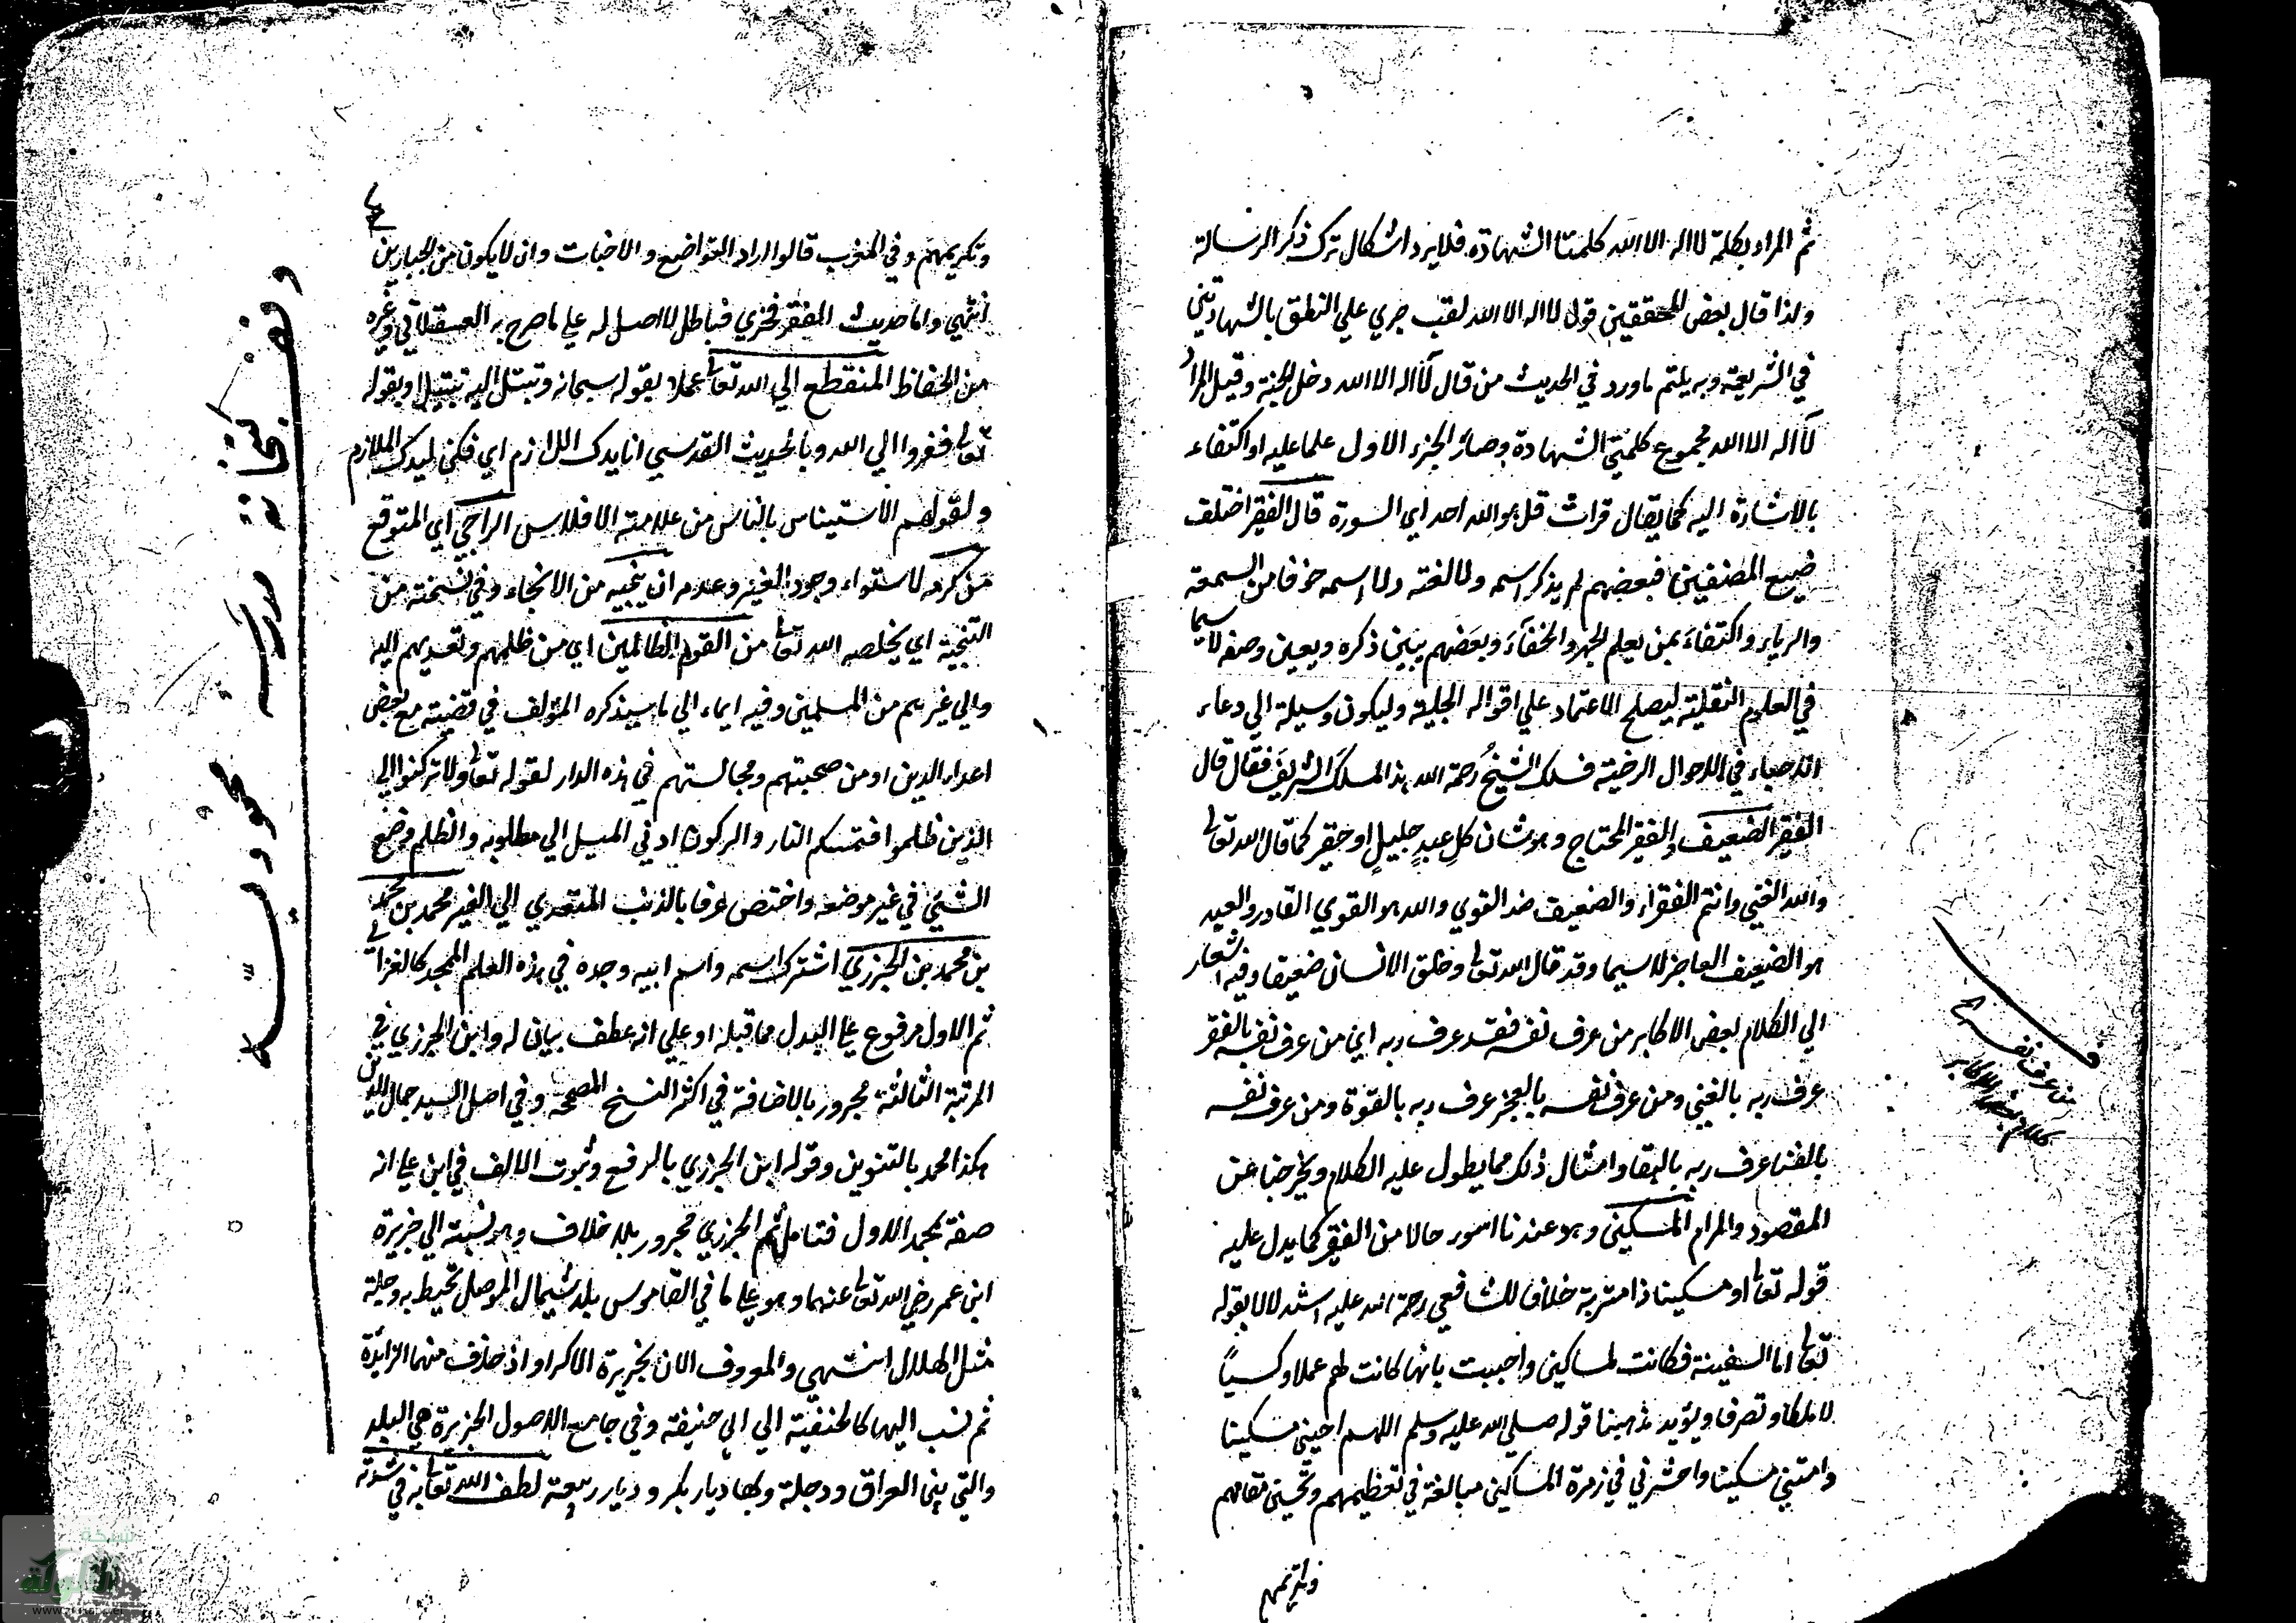 ثم المراد بكلمة لا اله الا الله كلمتا الشهادة فلا يرد اشكال ترك ذكر الرسالة
ولذا قال بعض المحققين قول لا اله الا الله لقب جري علي النطق بالشهادتين
في الشريعة وبه يلتم ما ورد في الحديث من قال لا اله الا الله دخل الجنة وقيل المراد
لا اله الا الله مجموع كلمتي الشهادة وصار الجزء الاول علما عليه او اكتفاء
بالاشارة اليه كما يقال قرات قل هو الله احد اي السورة قال الفقير اختلف
صنيع المصنفين فبعضهم لم يذكر اسمه ولا لغته ولا اسمه خوفا من السمعة
والرياء واكتفاء بمن يعلم الجهر والخفاء وبعضهم يبين ذكره ويعين وصفه لا سيما
في العلوم النقلية ليصلح الاعتماد علي اقواله الجلية وليكون وسيلة الي دعاء
في الاحوال الرضية فسلك الشيخ رحمة الله هذا المسلك الشريف فقال قال
الفقير الضعيف الفقير المحتاج وهو شان كل عبد جليل او حقير كما قال الله تعالى
والله الغني وانتم الفقراء والضعيف ضد القوي والله هو القوي القادر والعبد
هو الضعيف العاجز لا سيما وقد قال الله تعالى وخلق الانسان ضعيفا وفيه اشعار
الي الكلام لبعض الاكابر من عرف نفسه فقد عرف ربه اي من عرف نفسه بالفقر
عرف ربه بالغني ومن عرف نفسه بالعجز عرف ربه بالقوة ومن عرف نفسه
بالفنا عرف ربه بالبقا وامثال ذلك مما يطول عليه الكلام ويخرجنا عن
المقصود والمرام المسكين وهو عندنا اسوء حالا من الفقير كما يدل عليه
قوله تعالى او مسكينا ذا متربة خلافا للشافعي رحمة الله عليه استدلالا بقوله
تعالى اما السفينة فكانت لمساكين واجيبت بانها كانت لهم عملا وكسبا
لا ملكا وتصرفا ويؤيد مذهبنا قوله صلي الله عليه وسلم اللهم احيني مسكينا
وامتني مسكينا واحشرني في زمرة المساكين مبالغة في تعظيمهم وتحسين مقامهم
وتكريمهم
من عرف نفسه
كلام بعض الاكابر
وتكريمهم وفي المغرب قالوا اراد التواضع والاخبات وان لا يكون من الجبارين
انتهي واما حديث الفقر فخري فباطل لا اصل له علي ما صرح به العسقلاني وغيره
من الحفاظ المنقطع الي الله تعالى عملا بقوله سبحانه وتبتل اليه تبتيلا وبقوله
تعالى ففروا الي الله وبالحديث القدسي انا بدك اللازم اي فكن لبدك الملازم
ولقولهم الاستيناس بالناس من علامة الافلاس الراجي اي المتوقع
من كرمه لاستواء وجود الغير وعدمه ان ينجيه من الانجاء وفي نسخة من
التنجية اي يخلصه الله تعالى من القوم الظالمين اي من ظلمهم وتعديهم اليه
والي غيرهم من المسلمين وفيه ايماء الي ما سيذكره المؤلف في قضيته مع بعض
اعداء الدين او من صحبتهم ومجالستهم في هذه الدار لقوله تعالى ولا تركنوا الي
الذين ظلموا فتمسكم النار والركون ادني الميل الي مطلوبه والظلم وضع
الشئ في غير موضعه واختص عرفا بالذنب المتعدي الي الغير محمد بن محمد
بن محمد بن الجزري اشترك اسمه واسم ابيه وجده في هذه العلم الممجد كالغزالي
ثم الاول مرفوع علي البدل مما قبله او علي انه عطف بيان له وابن الجزري في
المرتبة الثالثة مجرور بالاضافة في اكثر النسخ المصححة وفي اصل السيد جمال الدين
هكذا محمد بالتنوين وقوله ابن الجزري بالرفع وثبوت الالف في ابن علي انه
صفة لمحمد الاول فتامل ثم الجزري مجرور بلا خلاف وهو نسبته الي جزيرة
ابن عمر رضي الله تعالى عنهما وهو علي ما في القاموس بلد شمال الموصل تحيط به دجلة
مثل الهلال انتهي والمعروف الان بجزيرة الاكراد اذ حذف منهما الزائدة
ثم نسب اليها كالحنفية الي ابي حنيفة وفي جامع الاصول الجزيرة هي البلد
والتي بين العراق ودجلة وبها ديار بكر وديار ربيعة لطف الله تعالى به في شدته
وقف
كتبخانة
مدرسه
محموديه